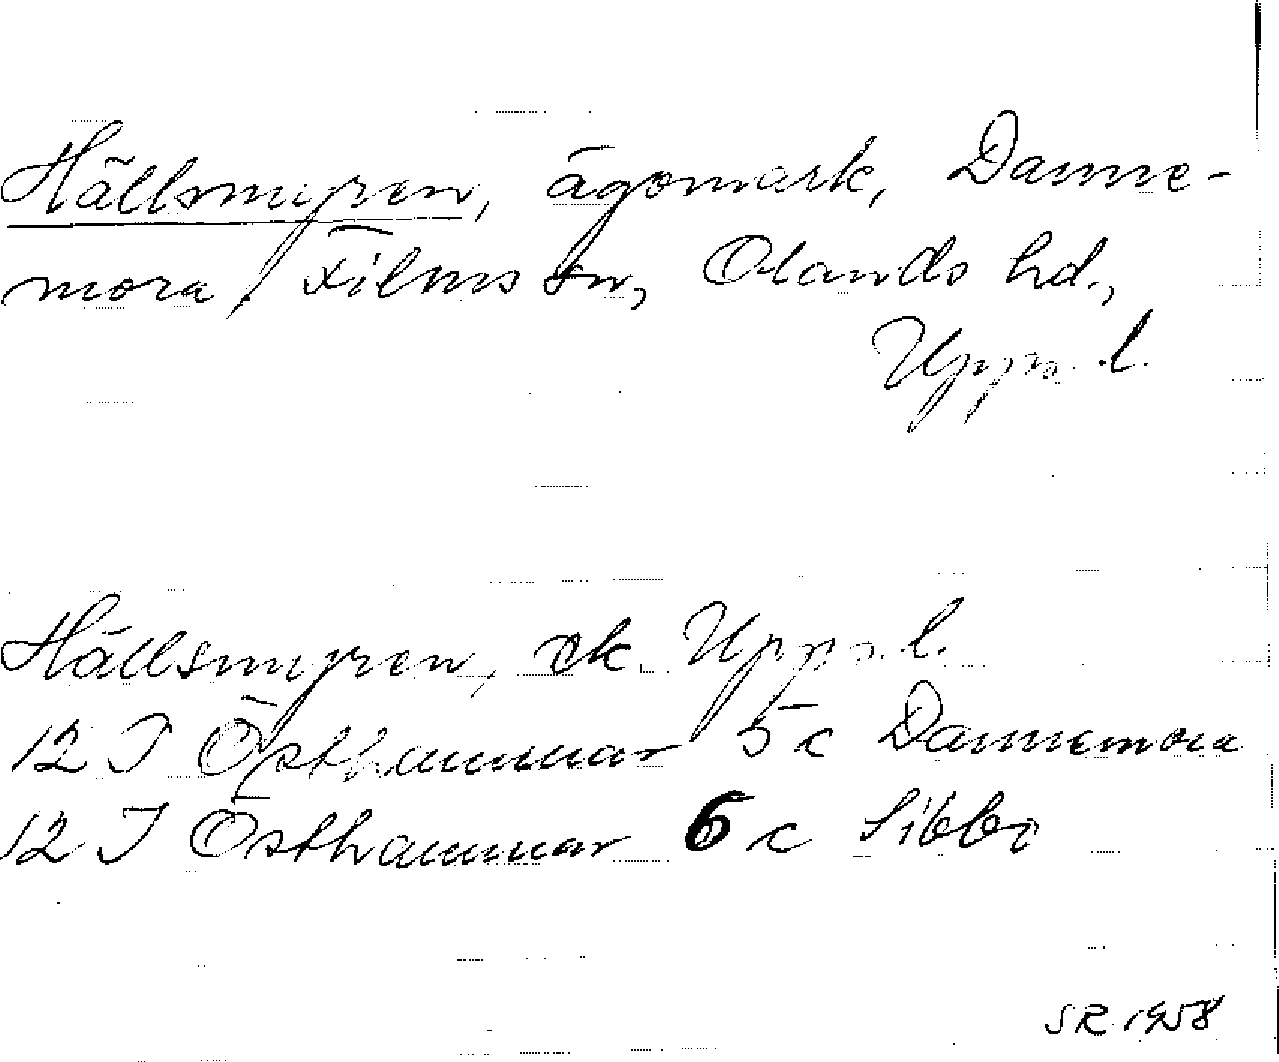 Hällsmyren, ägomark, Danne-
mora, Films sn, Olands hd.,
Upps. l.
Hällsmyren, ek. Upps. l.
12 I Östhammar 5c Dannemora
12 I Östhammar 6c Sibbo
SR 1958